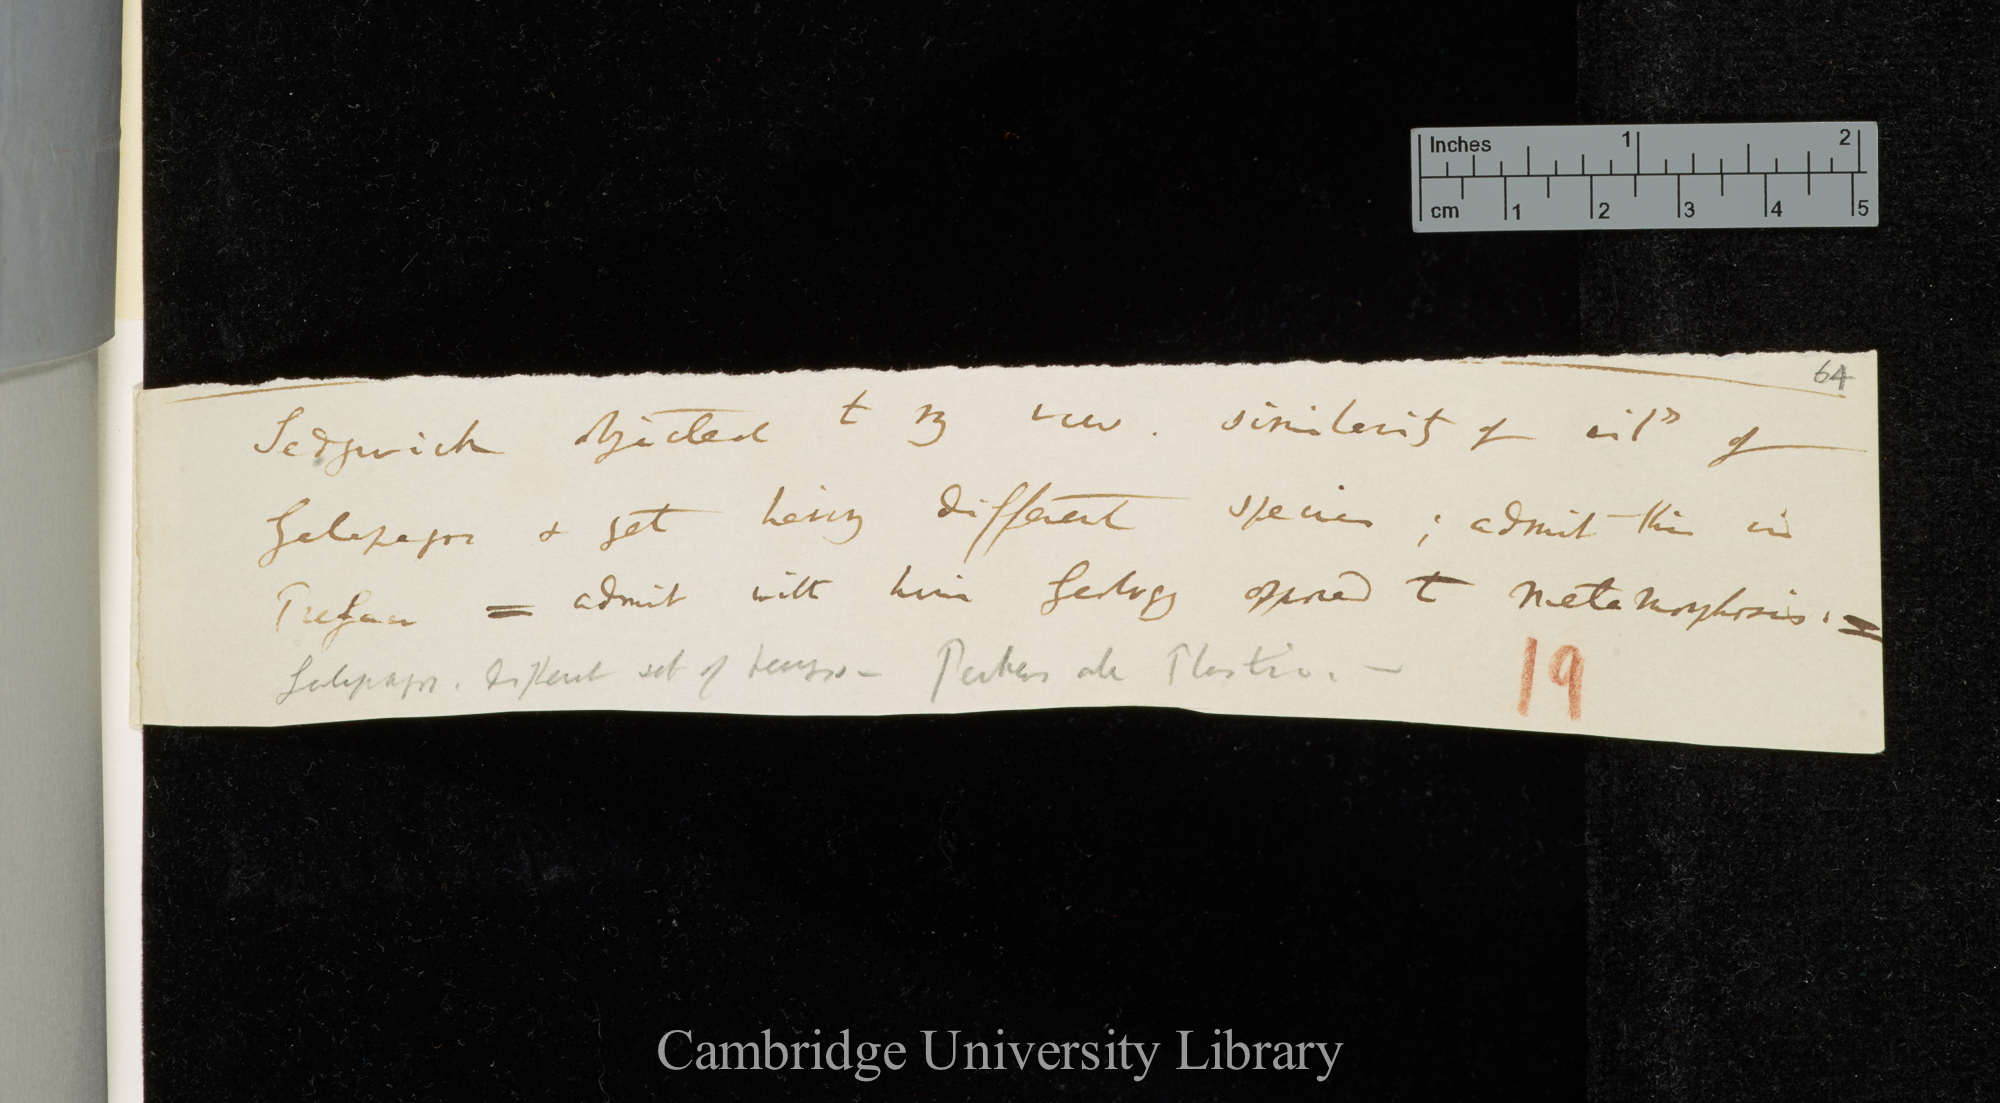 Inches 1 2
cm 1 2 3 4 5
64
Sedgwick objected to my view. similarity of isl^ds of
Galapagos & yet having different species; admit this in
= admit with him Geology opposed to metamorphosis. =
Galapagos. different set of beings — Perhaps also Plastic. —
19
Cambridge University Library